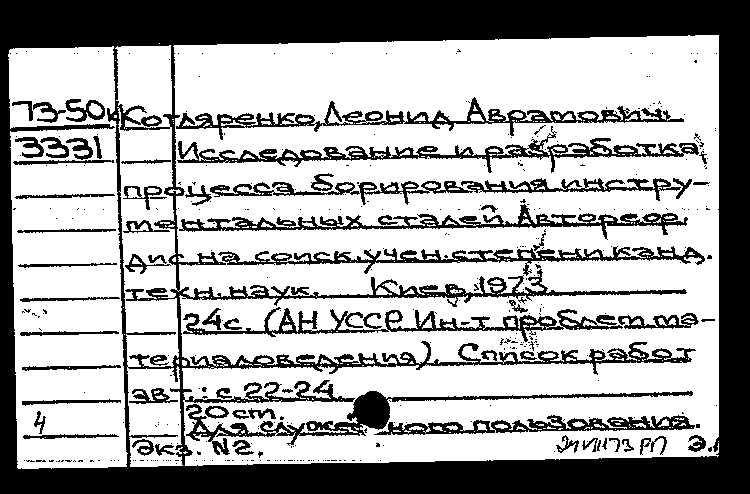 73-50к Котляренко, Леонид Аврамович.
3331 Исследование и разработка
процесса борирования инстру-
ментальных сталей. Автореф.
дис. на соиск. учен. степени канд.
техн. наук. Киев, 1973.
24с. (АН УССР. Ин-т проблем ма-
териаловедения). Список работ
авт.: с. 22-24.
20 см.
4 Для служебного пользования.
Экз. №2.
24 VIII 73 РП Э.